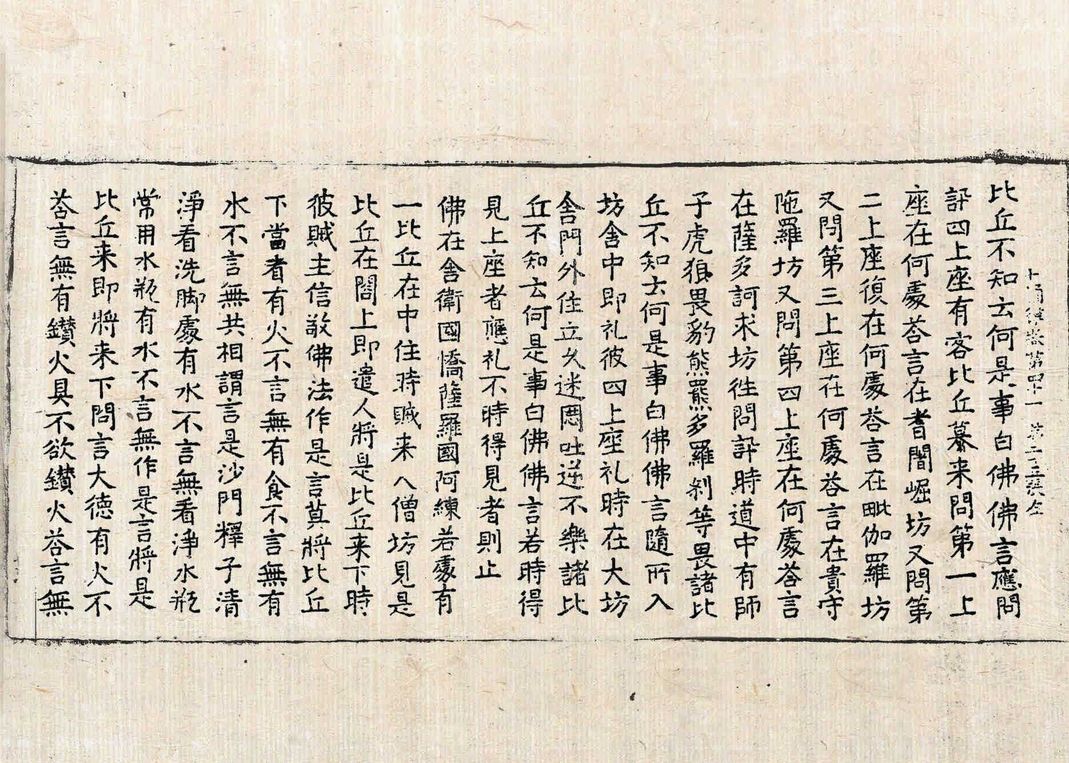 十誦律卷第四十一 第二三張 仝
比丘不知云何是事白佛佛言應問
訝四上座有客比丘暮来問第一上
座在何處荅言在耆闍崛坊又問第
二上座復在何處荅言在毗伽羅坊
又問第三上座在何處荅言在貴守
陁羅坊又問第四上座在何處荅言
在薩多訶求坊徃問訝時道中有師
子虎狼畏豹熊羆多羅剎等畏諸比
丘不知云何是事白佛佛言隨所入
坊舍中即礼彼四上座礼時在大坊
舍門外住立久迷悶吐逆不樂諸比
丘不知云何是事白佛佛言若時得
見上座者應礼不時得見者則止
佛在舍衛國憍薩羅國阿練若處有
一比丘在中住時賊来入僧坊見是
比丘在閣上即遣人將是比丘来下時
彼賊主信敬佛法作是言莫將比丘
下當看有火不言無有食不言無有
水不言無共相謂言是沙門釋子清
淨看洗脚處有水不言無看淨水瓶
常用水瓶有水不言無作是言將是
比丘来即將来下問言大德有火不
荅言無有鑚火具不欲鑚火荅言無